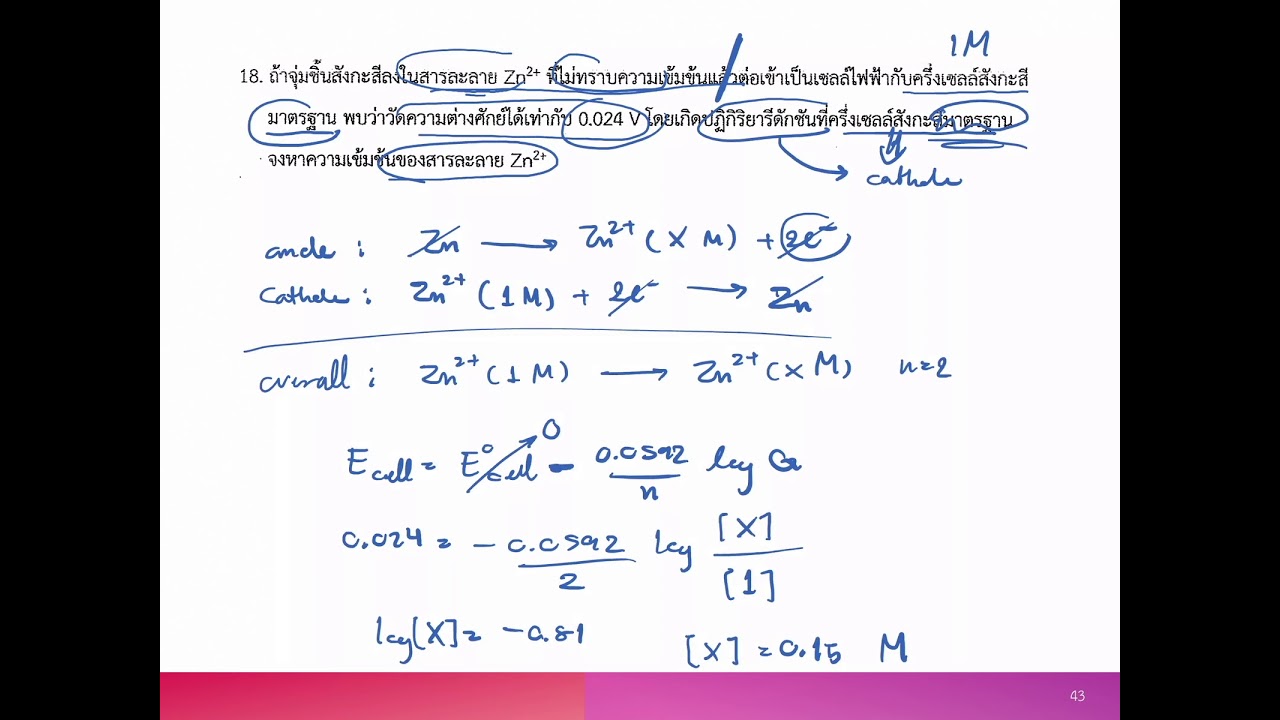 1M
18. ถ้าจุ่มชิ้นสังกะสีลงในสารละลาย Zn²⁺ ที่ไม่ทราบความเข้มข้นแล้วต่อเข้าเป็นเซลล์ไฟฟ้ากับครึ่งเซลล์สังกะสี
มาตรฐาน พบว่าวัดความต่างศักย์ได้เท่ากับ 0.024 V โดยเกิดปฏิกิริยารีดักชันที่ครึ่งเซลล์สังกะสีมาตรฐาน
จงหาความเข้มข้นของสารละลาย Zn²⁺
cathode
anode : Zn → Zn²⁺ (X M) + 2e⁻
Cathode : Zn²⁺ (1 M) + 2e⁻ → Zn
overall : Zn²⁺ (1 M) → Zn²⁺ (X M) n=2
0
E cell = E° cell - 0.0592/n log Q
0.024 = - 0.0592/2 log [X]/[1]
log[X] = -0.81 [X] = 0.15 M
43